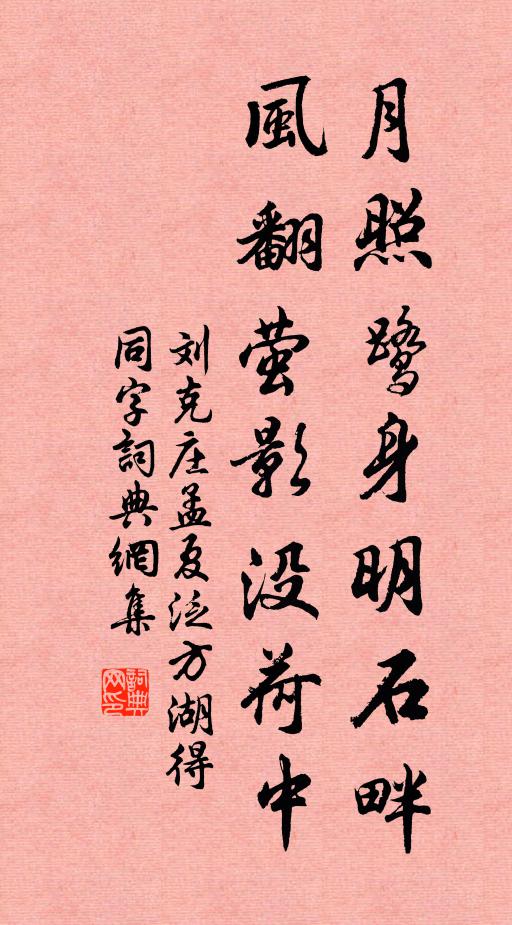 月照鷺身明石畔
風翻萤影没荷中
刘克庄孟夏泛方湖得
同字詞典網集
詞典
网印